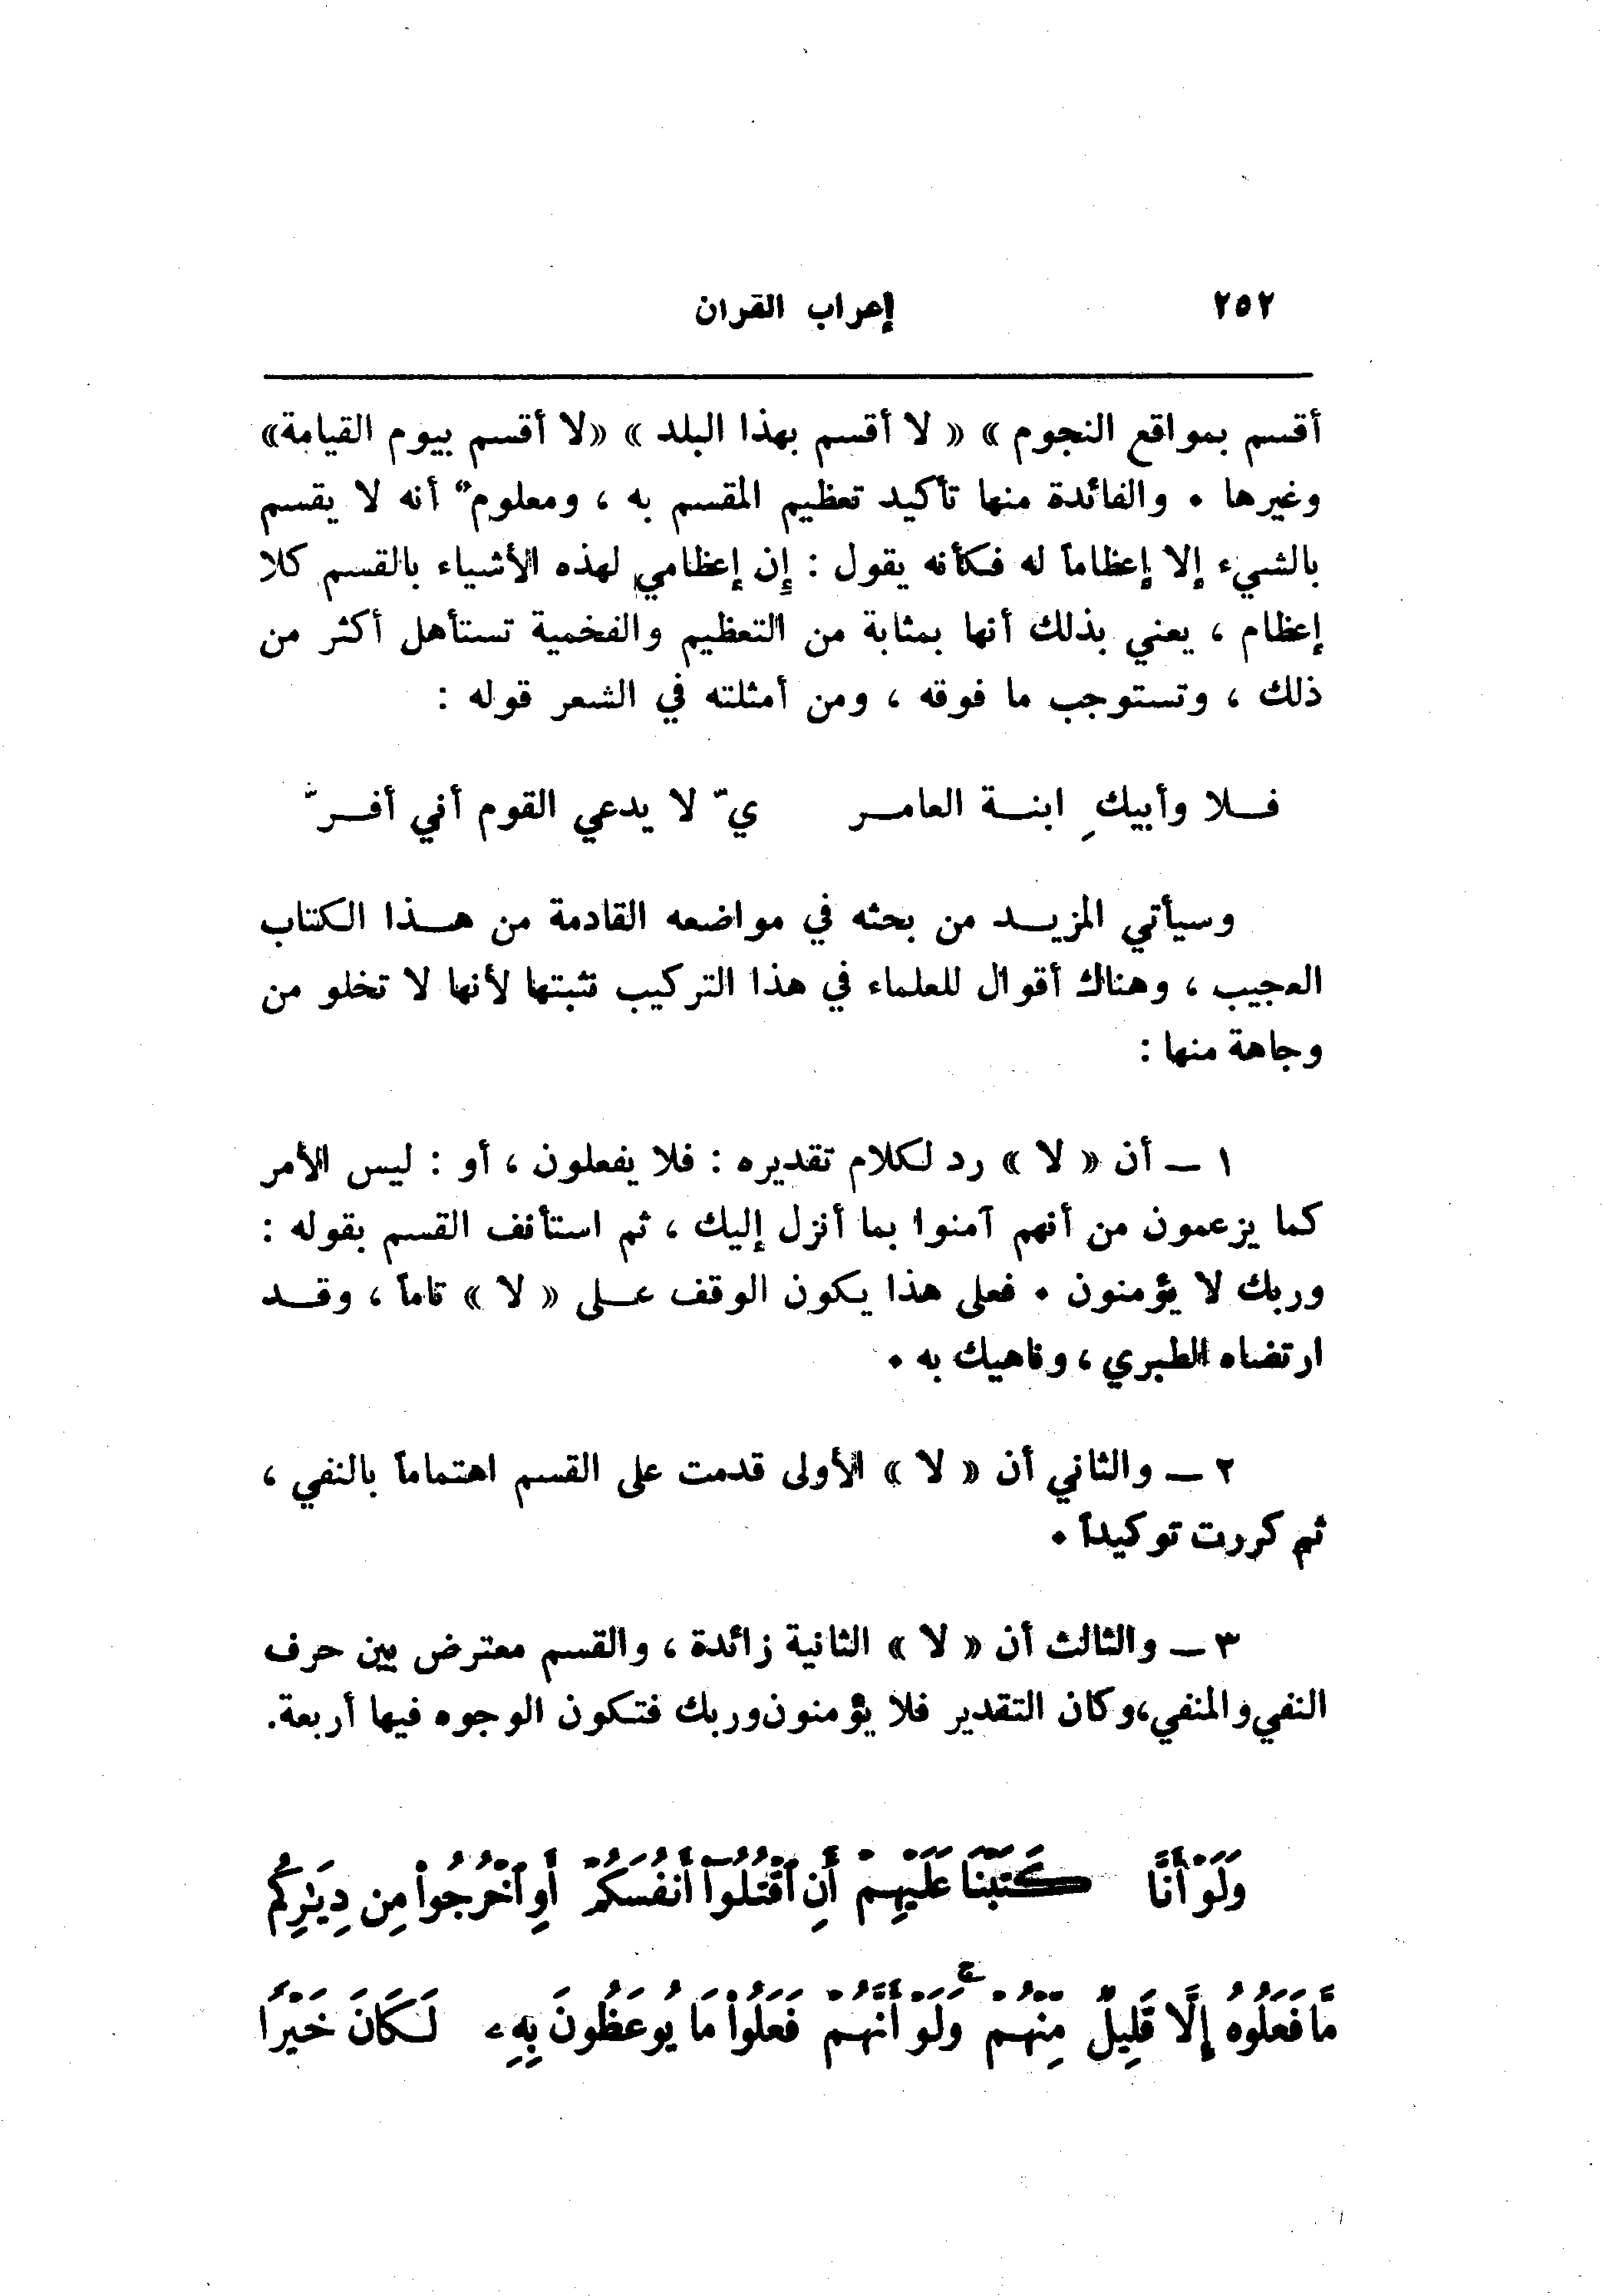 ٢٥٢ إعراب القرآن
أقسم بمواقع النجوم » « لا أقسم بهذا البلد » «لا أقسم بيوم القيامة»
وغيرها . والفائدة منها تأكيد تعظيم المقسم به ، ومعلوم ٌ أنه لا يقسم
بالشيء إلا إعظاماً له فكأنه يقول : إن إعظامي لهذه الأشياء بالقسم كلا
إعظام ، يعني بذلك أنها بمثابة من التعظيم والفخمية تستأهل أكثر من
ذلك ، وتستوجب ما فوقه ، ومن أمثلته في الشعر قوله :
فلا وأبيكِ ابنة العامر يّ لا يدعي القوم أني أفرّ
وسيأتي المزيد من بحثه في مواضعه القادمة من هذا الكتاب
العجيب ، وهناك أقوال للعلماء في هذا التركيب نثبتها لأنها لا تخلو من
وجاهة منها :
١ ـ أن « لا » رد لكلام تقديره : فلا يفعلون ، أو : ليس الأمر
كما يزعمون من أنهم آمنوا بما أنزل إليك ، ثم استأنف القسم بقوله :
وربك لا يؤمنون . فعلى هذا يكون الوقف على « لا » تاماً ، وقد
ارتضاه الطبري ، وناهيك به .
٢ ـ والثاني أن « لا » الأولى قدمت على القسم اهتماماً بالنفي ،
ثم كررت توكيداً .
٣ ـ والثالث أن « لا » الثانية زائدة ، والقسم معترض بين حرف
النفي والمنفي، وكان التقدير فلا يؤمنون وربك فتكون الوجوه فيها أربعة.
وَلَوْ أَنَّا كَتَبْنَا عَلَيْهِمْ أَنِ ٱقْتُلُوٓا۟ أَنفُسَكُمْ أَوِ ٱخْرُجُوا۟ مِن دِيَـٰرِكُم
مَّا فَعَلُوهُ إِلَّا قَلِيلٌ مِّنْهُمْ ۚ وَلَوْ أَنَّهُمْ فَعَلُوا۟ مَا يُوعَظُونَ بِهِۦ لَكَانَ خَيْرًا